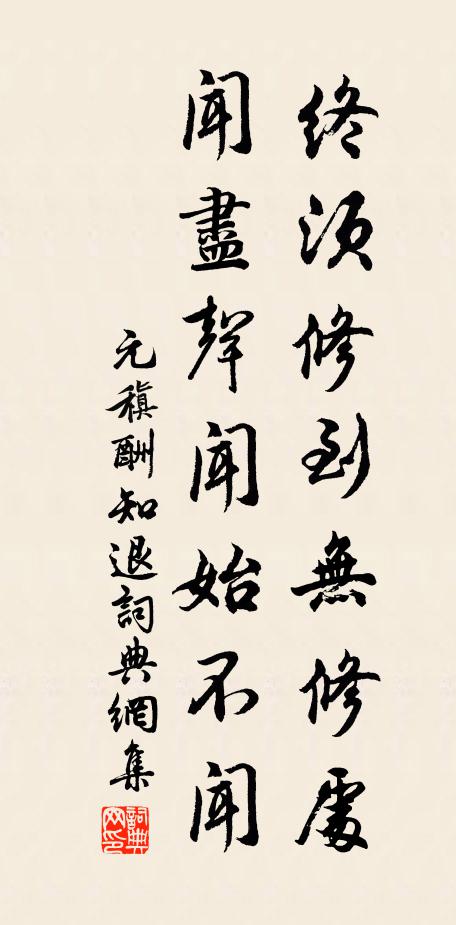 終須修到無修處
聞盡聲聞始不聞
元稹酬知退詞典網集
詞典網印